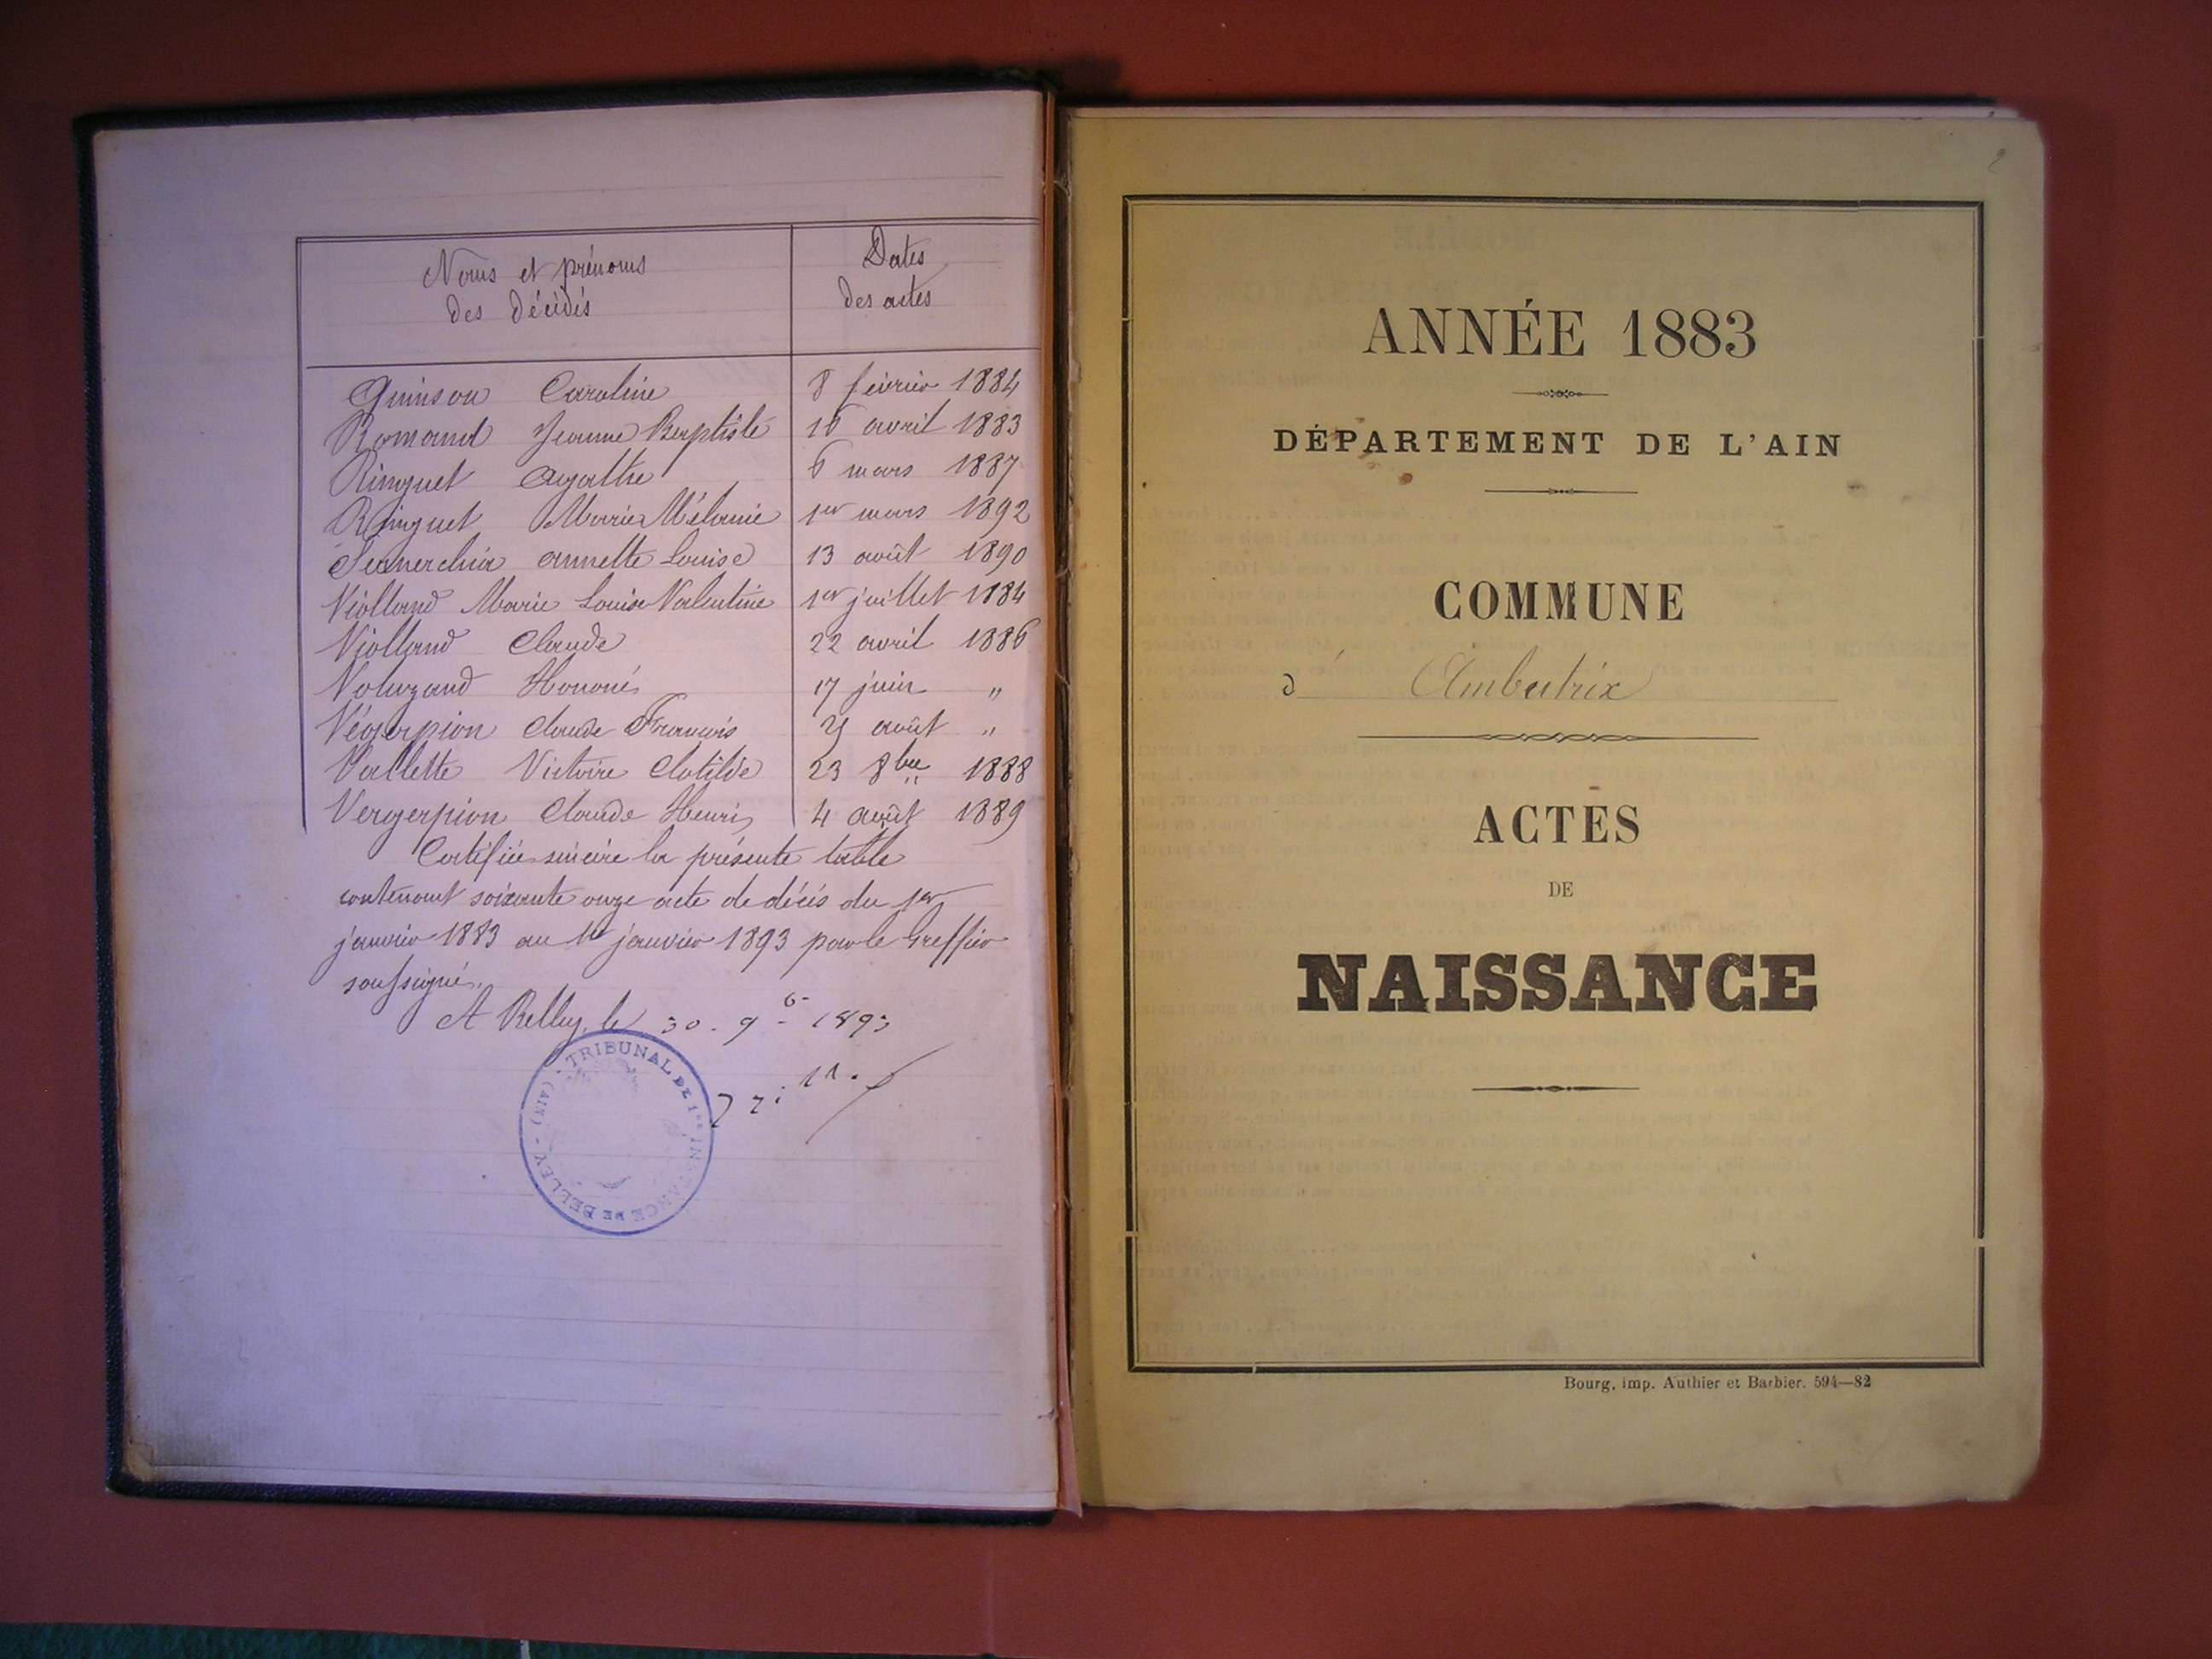 Noms et prénoms
des décédés
Dates
des actes
Quinson Caroline 8 février 1884
Romand Jeanne Baptiste 16 avril 1883
Ringuet Agathe 6 mars 1887
Ringuet Marie Mélanie 1er mars 1892
Annette Louise 13 août 1890
Violland Marie Louise Valentine 1er juillet 1884
Violland Claude 22 avril 1886
Honoré 17 juin "
Claude François août "
Vallette Victoire Clotilde 23 8bre 1888
Vergerpion Claude Henri 4 août 1889
Certifiée sincère la présente table
contenant soixante onze acte de décès du 1er
janvier 1883 au 1er janvier 1893 par le Greffier
soussigné.
A Belley, le 30 - 9b - 1893
TRIBUNAL DE 1re INSTANCE DE BELLEY - (AIN) -
2
ANNÉE 1883
DÉPARTEMENT DE L'AIN
COMMUNE
d' Ambutrix
ACTES
DE
NAISSANCE
Bourg, imp. Authier et Barbier. 594—82